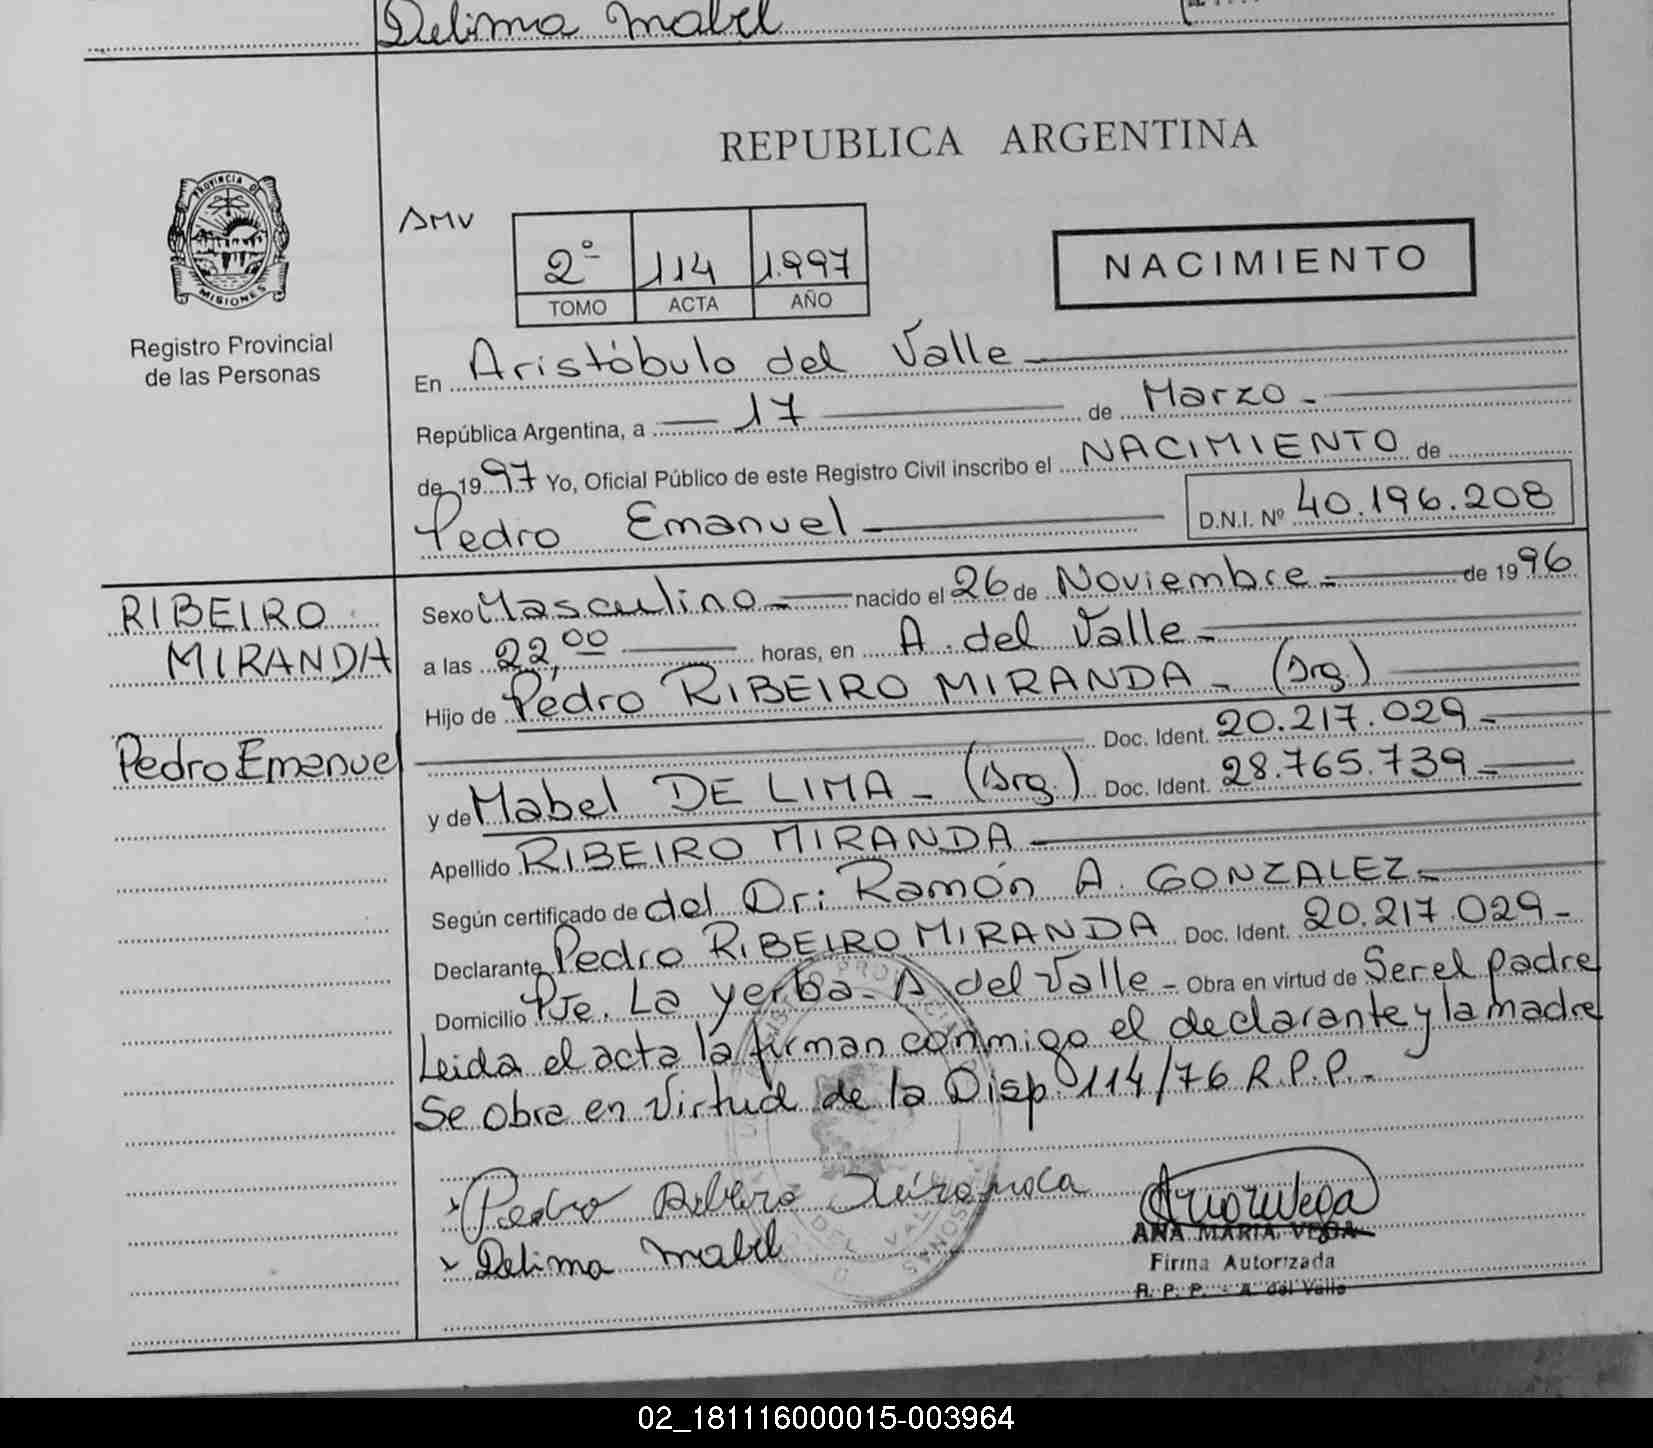 Delima Mabel
REPUBLICA ARGENTINA
PROVINCIA DE
MISIONES
Registro Provincial
de las Personas
AMV
2º 114 1.997
TOMO ACTA AÑO
NACIMIENTO
En Aristóbulo del Valle
República Argentina, a 17 de Marzo
de 1997 Yo, Oficial Público de este Registro Civil inscribo el NACIMIENTO de
Pedro Emanuel D.N.I. Nº 40.196.208
RIBEIRO
MIRANDA
Pedro Emanuel
Sexo Masculino nacido el 26 de Noviembre de 1996
a las 22,00 horas, en A. del Valle
Hijo de Pedro RIBEIRO MIRANDA - (Arg.)
Doc. Ident. 20.217.029
y de Mabel DE LIMA - (Arg.) Doc. Ident. 28.765.739
Apellido RIBEIRO MIRANDA
Según certificado de del Dr: Ramón A. GONZALEZ
Declarante Pedro RIBEIRO MIRANDA Doc. Ident. 20.217.029
Domicilio Pje. La yerba - A del Valle - Obra en virtud de Ser el padre
Leida el acta la firman conmigo el declarante y la madre
Se obra en virtud de la Disp. 114/76 R.P.P.
Pedro Ribero Miranda
Delima Mabel
ANA MARIA VEGA
Firma Autorizada
R. P. P. - A. del Valle
02_181116000015-003964